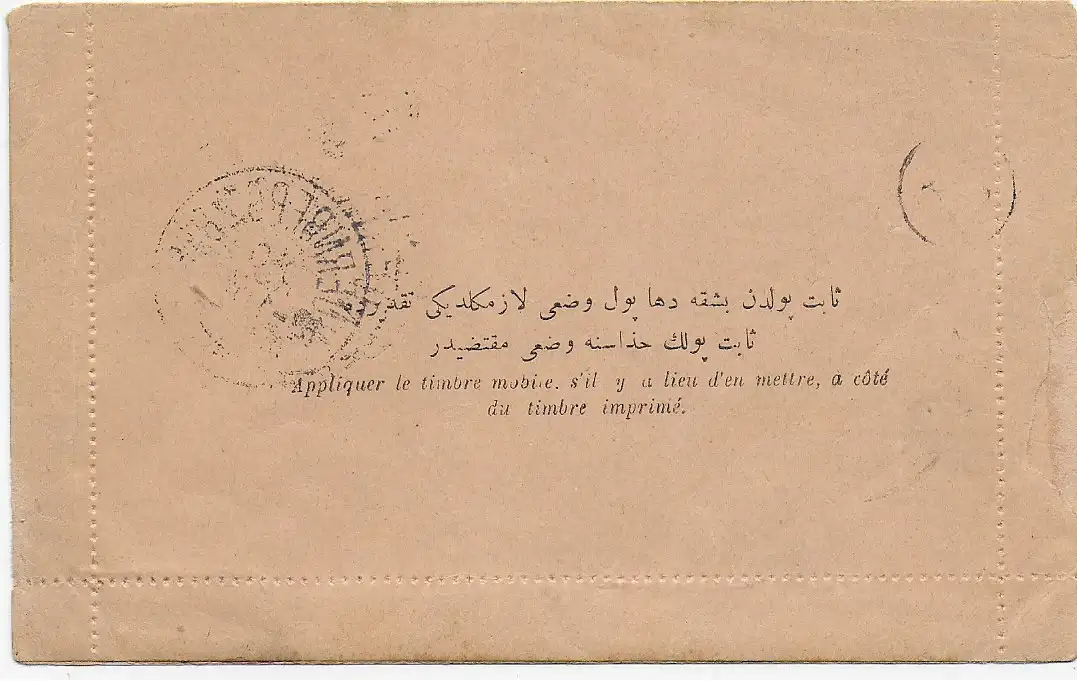 ثابت پولدن بشقه دها پول وضعی لازمکلدیکی تقدیرده
ثابت پولك حذاسنه وضعی مقتضیدر
Appliquer le timbre mobile, s'il y a lieu d'en mettre, à côté
du timbre imprimé.